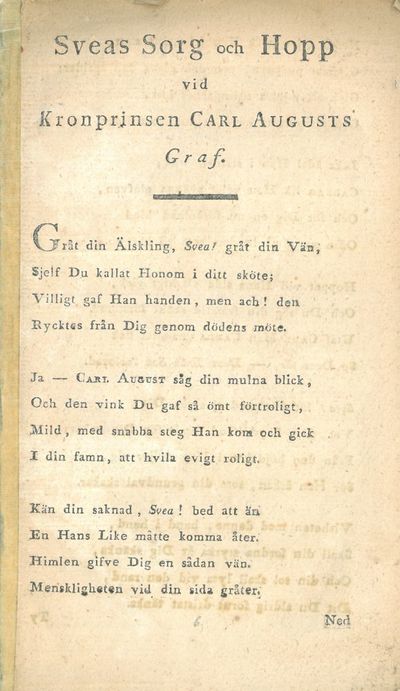 Sveas Sorg och Hopp
vid
Kronprinsen CARL AUGUSTS
Graf.
Gråt din Älskling, Svea! gråt din Vän,
Sjelf Du kallat Honom i ditt sköte;
Villigt gaf Han handen, men ach! den
Rycktes från Dig genom dödens möte.
Ja — CARL AUGUST såg din mulna blick,
Och den vink Du gaf så ömt förtroligt,
Mild, med snabba steg Han kom och gick
I din famn, att hvila evigt roligt.
Kän din saknad, Svea! bed att än
En Hans Like måtte komma åter.
Himlen gifve Dig en sådan vän.
Menskligheten vid din sida gråter.
6
Ned